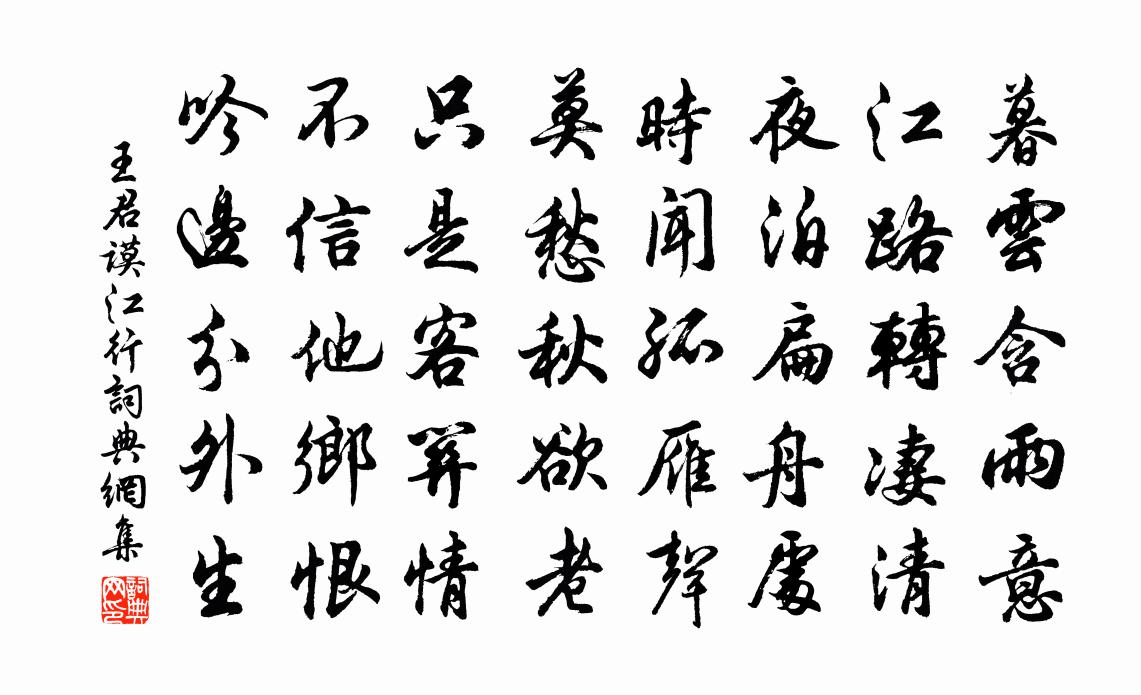 暮雲含雨意
江路轉凄清
夜泊扁舟處
時聞孤雁聲
莫愁秋欲老
只是客情
不信他鄉恨
吟邊分外生
王君謨江行詞典網集
詞典网印